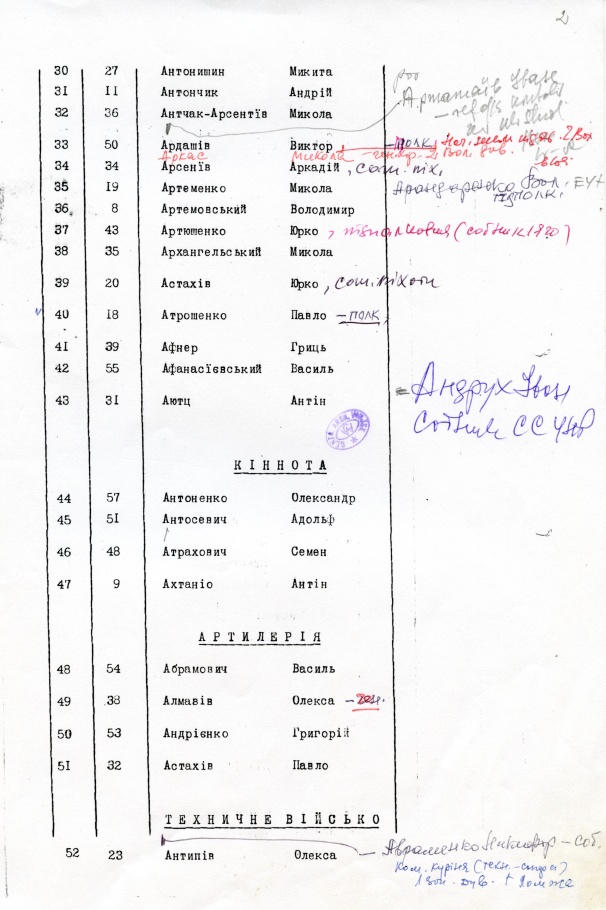 2
30 27 Антонишин Микита
31 11 Антончик Андрій
32 36 Антчак-Арсентїв Микола
33 50 Ардашів Виктор, -полк,
Аркас Микола
34 34 Арсенїв Аркадій, сот. піх,
35 19 Артеменко Микола
36 8 Артемовський Володимир
37 43 Артюшенко Юрко,
38 35 Архангельський Микола
39 20 Астахів Юрко, сот. піхоти
40 18 Атрошенко Павло -полк,
41 39 Афнер Гриць
42 55 Афанасїєвський Василь
43 31 Аютц Антін
Андрух Іван
Сотник СС УНР
КІННОТА
44 57 Антоненко Олександр
45 51 Антосевич Адольф
46 48 Атрахович Семен
47 9 Ахтаніо Антін
АРТИЛЕРІЯ
48 54 Абрамович Василь
49 38 Алмавів Олекса
50 53 Андрієнко Григорій
51 32 Астахів Павло
ТЕХНИЧНЕ ВІЙСЬКО
52 23 Антипів Олекса — Авраменко Никифор - сот.
Ком. куріня